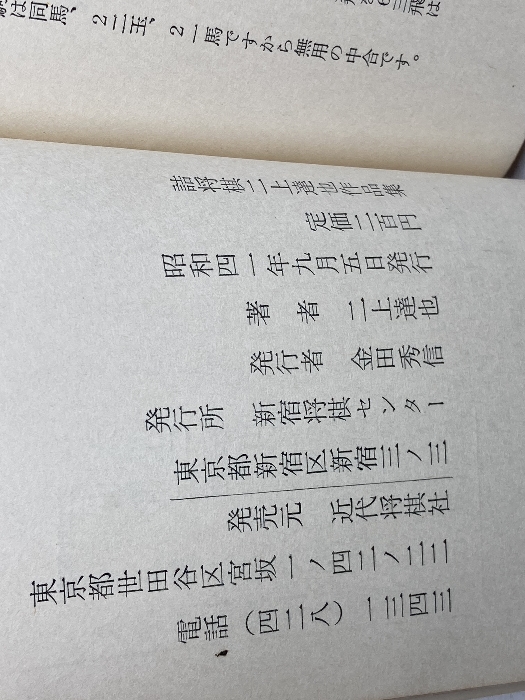 6三飛は
は同馬、2二玉、2一馬ですから無用の中合です。
詰将棋二上達也作品集
定価二百円
昭和四一年九月五日発行
著 者 二上達也
発行者 金田秀信
発行所 新宿将棋センター
東京都新宿区新宿三ノ三
発売元 近代将棋社
東京都世田谷区宮坂一ノ四二ノ二三
電話（四二八）一三四三